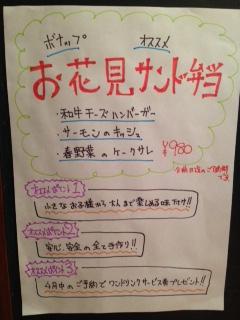 ボナップ オススメ
お花見サンド弁当
・和牛チーズハンバーガー
・サーモンのキッシュ
・春野菜のケークサレ
¥980
オススメポイント1
小さなお子様から大人まで楽しめる味付け!!
オススメポイント2
安心、安全の全て手作り!!
オススメポイント3
今月中のご予約でワンドリンクサービス券プレゼント!!